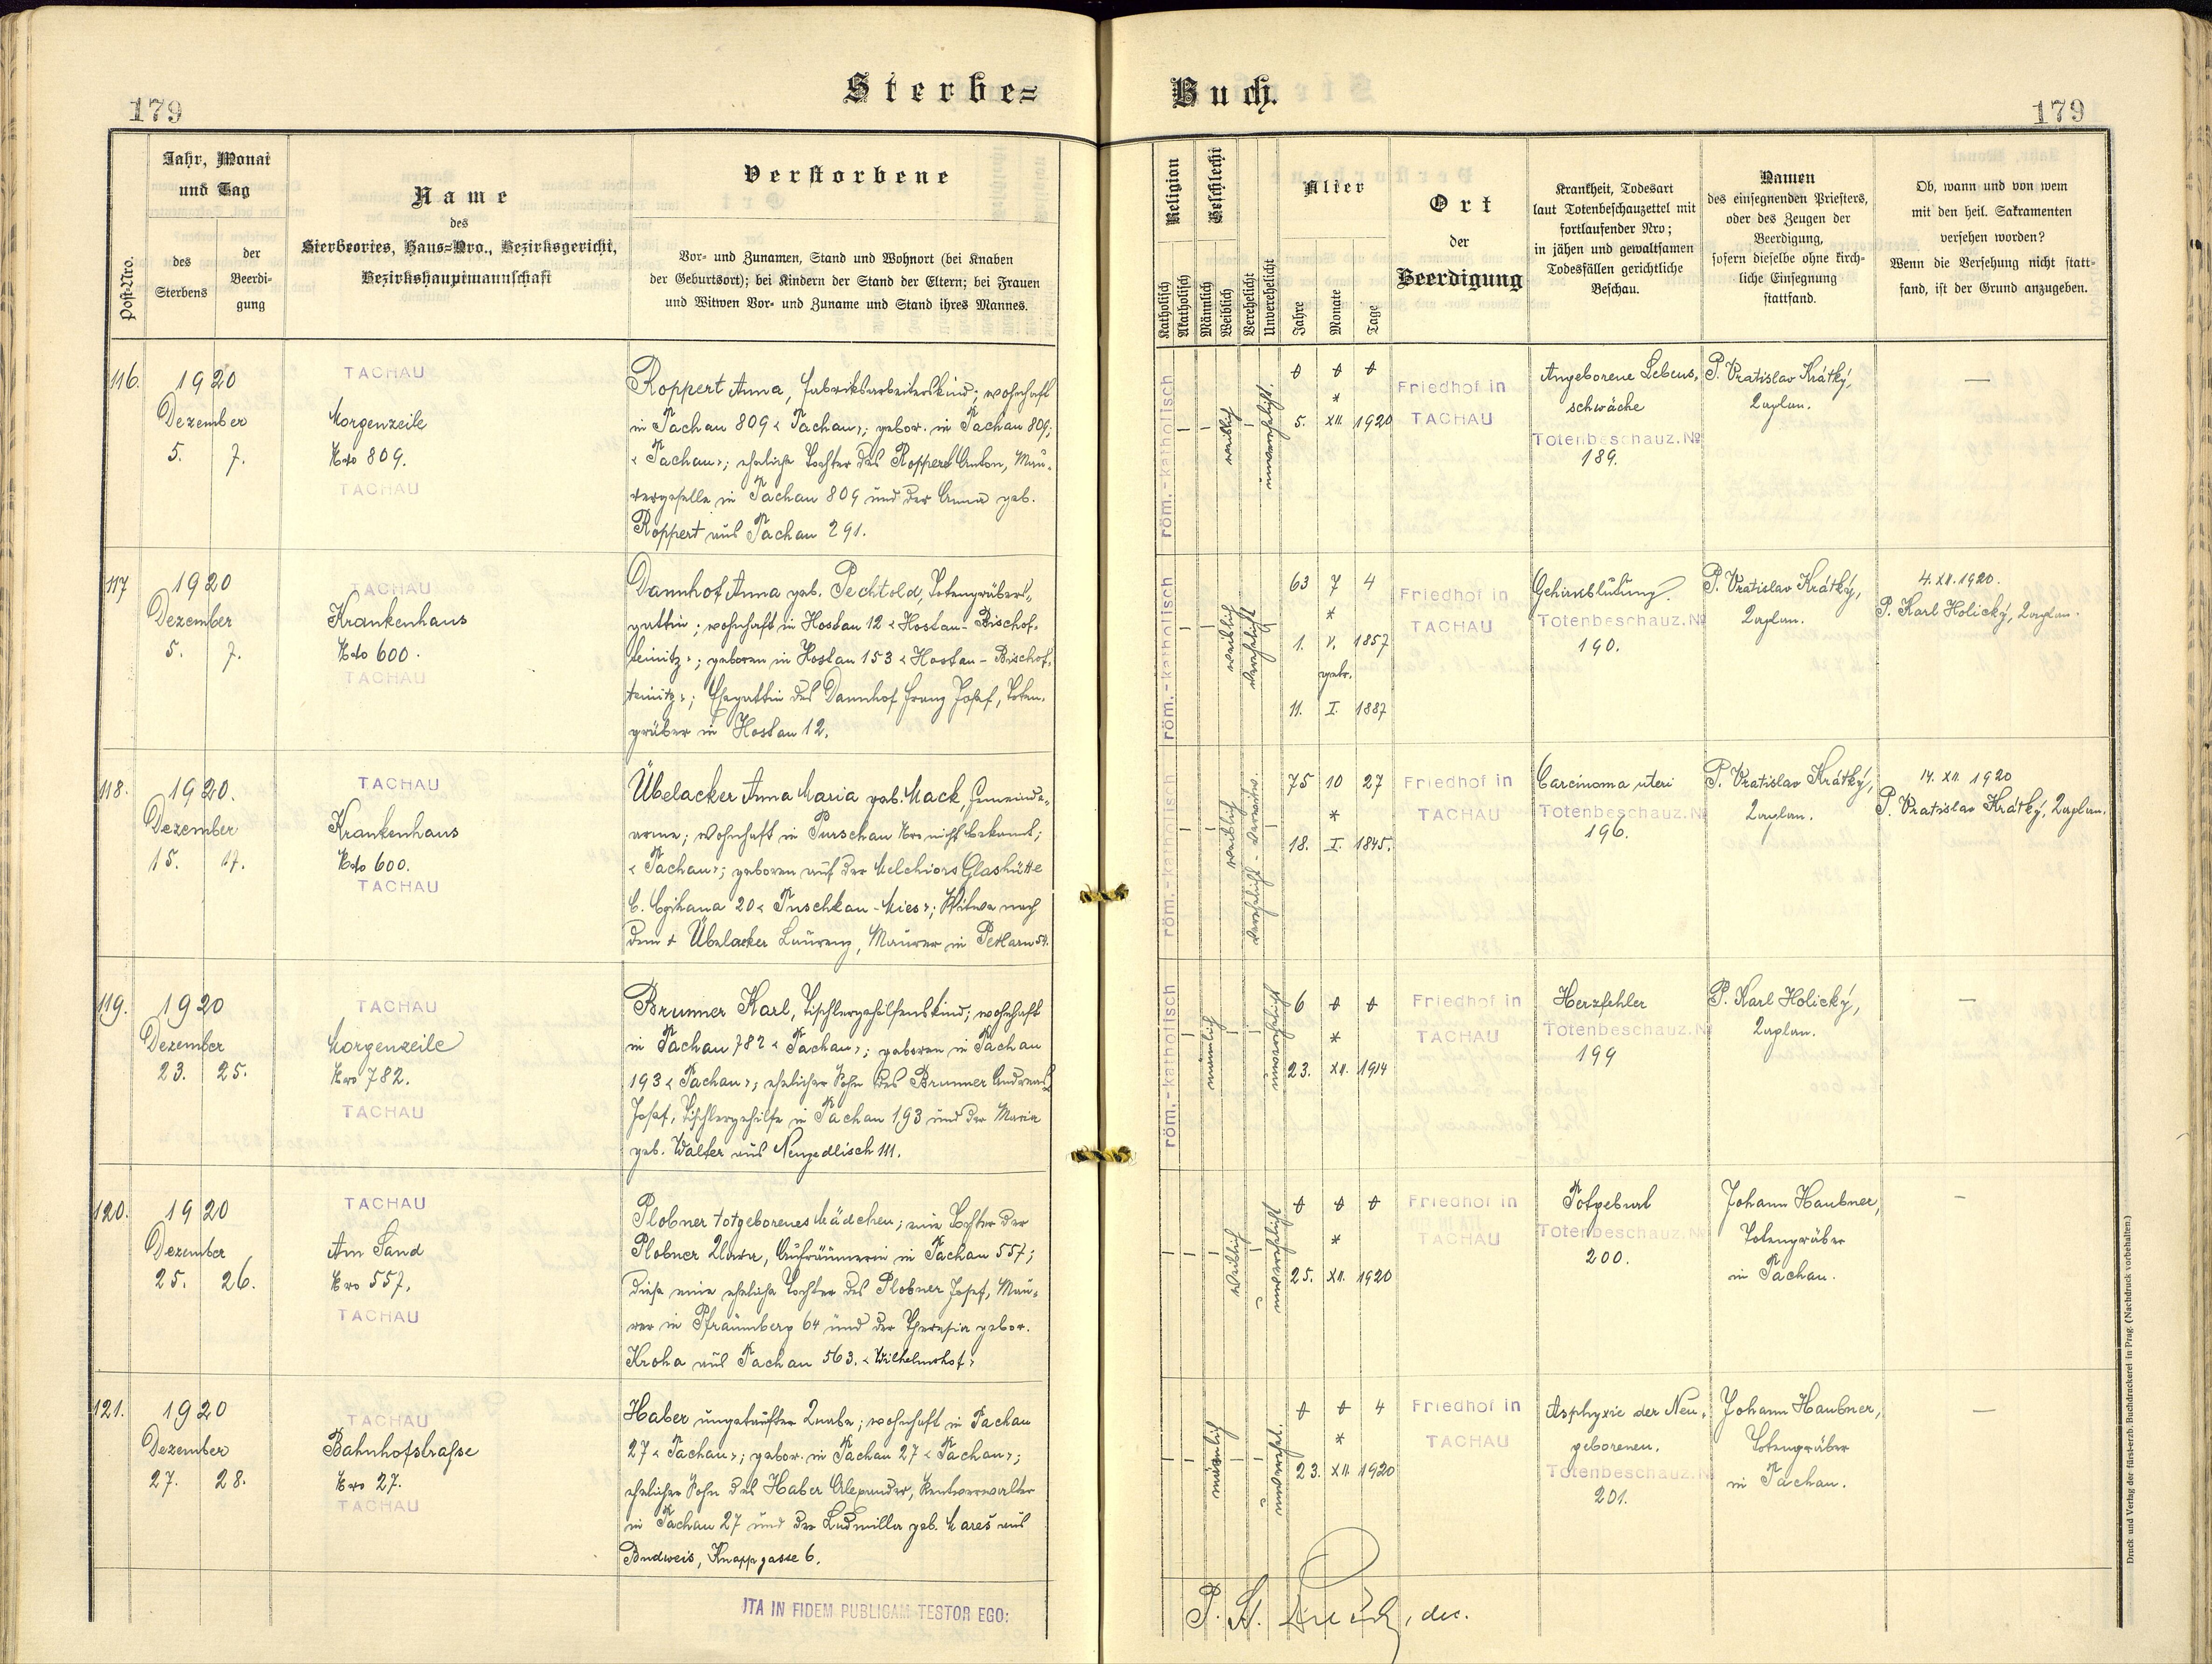 179
Sterbe=
Buch.
179
Post=Nro.
Jahr, Monat
und Tag
des
Sterbens
der
Beerdi=
gung
Name
des
Sterbeortes, Haus=Nro., Bezirksgericht,
Bezirkshauptmannschaft
Verstorbene
Vor= und Zunamen, Stand und Wohnort (bei Knaben
der Geburtsort); bei Kindern der Stand der Eltern; bei Frauen
und Witwen Vor= und Zuname und Stand ihres Mannes.
Religion
Katholisch
Akatholisch
Geschlecht
Männlich
Weiblich
Verehelicht
Unverehelicht
Alter
Jahre
Monate
Tage
Ort
der
Beerdigung
Krankheit, Todesart
laut Totenbeschauzettel mit
fortlaufender Nro;
in jähen und gewaltsamen
Todesfällen gerichtliche
Beschau.
Namen
des einsegnenden Priesters,
oder des Zeugen der
Beerdigung,
sofern dieselbe ohne kirch=
liche Einsegnung
stattfand.
Ob, wann und von wem
mit den heil. Sakramenten
versehen worden?
Wenn die Versehung nicht statt=
fand, ist der Grund anzugeben.
116.
1920
Dezember
5. 7.
TACHAU
Morgenzeile
Nro 809.
TACHAU
Roppert Anna, Fabriksarbeiterskind; wohnhaft
in Tachau 809 < Tachau >; gebor. in Tachau 809;
< Tachau >; eheliche Tochter des Roppert Anton, Mau=
rergeselle in Tachau 809 und der Anna geb.
Roppert aus Tachau 291.
röm.-katholisch
weiblich
unverehelicht.
*
5. XII. 1920
Friedhof in
TACHAU
Angeborene Lebens=
schwäche
Totenbeschauz. №
189.
P. Vratislav Krátký,
Kaplan.
—
117
1920
Dezember
5. 7.
TACHAU
Krankenhaus
Nro 600.
TACHAU
Dannhof Anna geb. Pechtold, Totengräbers=
gattin; wohnhaft in Hostau 12 < Hostau - Bischof=
teinitz >; geboren in Hostau 153 < Hostau - Bischof=
teinitz >; Ehegattin des Dannhof Franz Josef, Toten=
gräber in Hostau 12.
röm.-katholisch
weiblich
verehelicht
63 7 4
*
1. V. 1857
getr.
11. I. 1887
Friedhof in
TACHAU
Gehirnblutung.
Totenbeschauz. №
190.
P. Vratislav Krátký,
Kaplan.
4. XII. 1920.
P. Karl Holický, Kaplan.
118.
1920.
Dezember
15. 17.
TACHAU
Krankenhaus
Nro 600.
TACHAU
Übelacker Anna Maria geb. Mack, Gemeinde=
arme; wohnhaft in Purschau Nro nicht bekannt;
< Tachau >; geboren auf der Melchiors Glashütte
20 < Tuschkau - Mies >; Witwe nach
dem † Übelacker Laurenz, Maurer in Petlarn 54.
röm.-katholisch
weiblich
verehelicht - verwitw.
75 10 27
*
18. I. 1845.
Friedhof in
TACHAU
Carcinoma uteri
Totenbeschauz. №
196.
P. Vratislav Krátký,
Kaplan.
14. XII. 1920
P. Vratislav Krátký, Kaplan.
119.
1920
Dezember
23. 25.
TACHAU
Morgenzeile
Nro 782.
TACHAU
Brunner Karl, Tischlergehilfenskind; wohnhaft
in Tachau 782 < Tachau >; geboren in Tachau
193 < Tachau >; ehelicher Sohn des Brunner Andreas
Josef, Tischlergehilfe in Tachau 193 und der Maria
geb. Walter aus Neuzedlisch 111.
röm.-katholisch
männlich
unverehelicht
6
*
23. XII. 1914
Friedhof in
TACHAU
Herzfehler
Totenbeschauz. №
199
P. Karl Holický,
Kaplan.
—
120.
1920
Dezember
25. 26.
TACHAU
Am Sand
Nro 557.
TACHAU
Plobner totgeborenes Mädchen; eine Tochter der
Plobner Klara, Aufräumerin in Tachau 557;
diese eine eheliche Tochter des Plobner Josef, Mau=
rer in Pfraumberg 64 und der Theresia gebor.
Kroha aus Tachau 563. < Wilhelmshof >
weiblich
unverehelicht
*
25. XII. 1920
Friedhof in
TACHAU
Totgeburt
Totenbeschauz. №
200.
Johann Haubner,
Totengräber
in Tachau.
—
121.
1920
Dezember
27. 28.
TACHAU
Bahnhofstraße
Nro 27.
TACHAU
Haber ungetaufter Knabe; wohnhaft in Tachau
27 < Tachau >; gebor. in Tachau 27 < Tachau >;
ehelicher Sohn des Haber Alexander, Rentverwalter
in Tachau 27 und der Ludmilla geb. Mareš aus
Budweis, Knappgasse 6.
männlich
unverehel.
4
*
23. XII. 1920
Friedhof in
TACHAU
Asphyxie der Neu=
geborenen.
Totenbeschauz. №
201.
Johann Haubner,
Totengräber
in Tachau.
—
ITA IN FIDEM PUBLICAM TESTOR EGO:
P. St. dec.
Druck und Verlag der fürst-erzb. Buchdruckerei in Prag. (Nachdruck vorbehalten.)